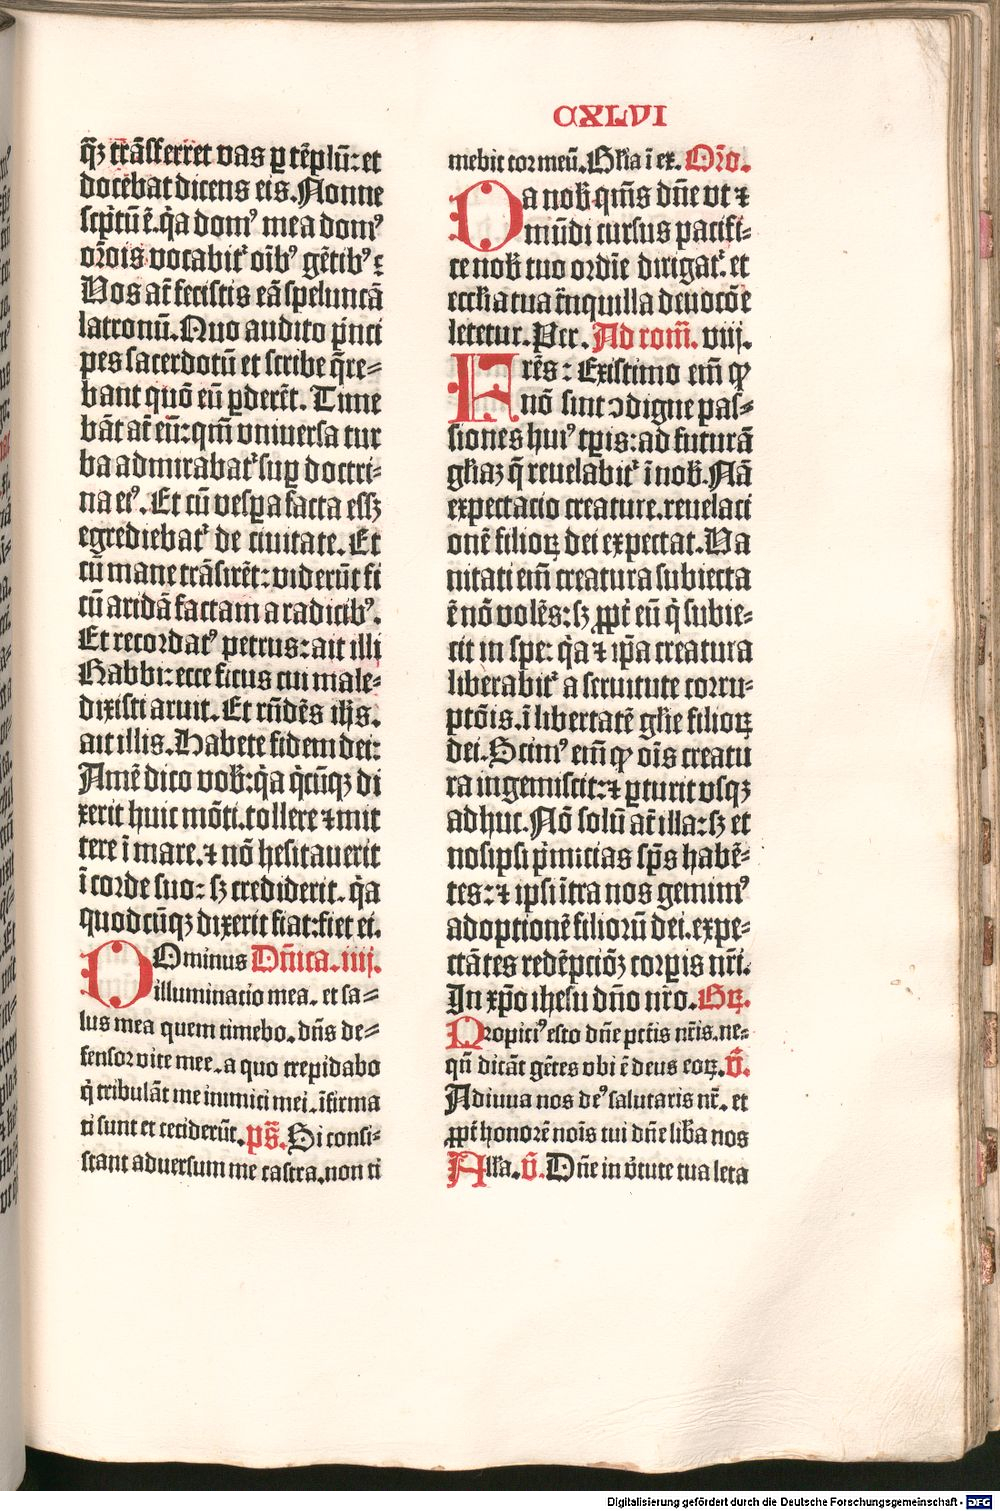 CXLVI
q̄ꝫ trāsferret vas ꝑ tēplū: et
docēbat dicens eis. Nonne
scptū ē. q̇a domꝰ mea domꝰ
or̄ois vocabit᷑ oībꝰ gētibꝰ ⁊
Vos at̄ fecistis eā speluncā
latronū. Quo audito pͥnci
pes sacerdotū et scribe q̄re-
bant quō eū ꝑderēt. Time
bāt at̄ eū: qm̄ vniuersa tur
ba admirabat᷑ suꝑ doctri-
na eiꝰ. Et cū vespa facta essꝫ
egrediebat᷑ de ciuitate. Et
cū mane trāsirēt: viderūt fi
cū aridā factam a radicibꝰ.
Et recordatꝰ petrus: ait illi
Rabbi: ecce ficus cui male-
dixisti aruit. Et rn̄dēs ih̄s.
ait illis. Habete fidem dei:
Amē dico vob̄: q̇a q̇cūqꝫ di
xerit huic mōti. tollere ⁊ mit
tere ī mare. ⁊ nō hesitauerit
ī corde suo: sꝫ crediderit. q̇a
quodcūqꝫ dixerit fiat: fiet ei.
DOminus Dn̄ica. iiij.
illuminacio mea. et sa-
lus mea quem timebo. dn̄s de-
fensor vite mee. a quo trepidabo
q̇ tribulāt me inimici mei. īfirma
ti sunt et ceciderūt. ps̄. Si consi-
stant aduersum me castra. non ti
mebit cor meū. Gl̄ia ī ex. Or̄o.
Da nob̄. qm̄s dn̄e vt ⁊
mūdi cursus pacifi-
ce nob̄ tuo ordīe dirigat᷑. et
eccl̄ia tua tͣnquilla deuocōe
letetur. Per. Ad rom̄. viij.
FRēs: Existimo em̄ ꝙ
nō sint ꝯdigne pas-
siones huiꝰ tꝑis: ad futurā
gl̄iaꝫ q̄ reuelabit᷑ ī nob̄. Nā
expectacio creature. reuelaci
onē filioꝝ dei expectat. Va
nitati em̄ creatura subiecta
ē nō volēs: sꝫ ꝓpt̄ eū q̇ subie-
cit in spe: q̇a ⁊ ip̄a creatura
liberabit᷑ a seruitute corru-
ptōis. ī libertatē gl̄ie filioꝝ
dei. Scimꝰ em̄ ꝙ oīs creatu
ra ingemiscit: ⁊ ꝑturit vsqꝫ
adhuc. Nō solū at̄ illa: sꝫ et
nosipsi pͥmicias sp̄s habē-
tes: ⁊ ipsi ītra nos gemimꝰ
adoptionē filiorū dei. expe-
ctātes redēpciōꝫ corꝑis nr̄i.
In xp̄o ihesu dn̄o nr̄o. Gꝝ.
Propiciꝰ esto dn̄e pctīs nr̄is. ne-
qn̄ dicāt gētes vbi ē deus eoꝝ. v̄.
Adiuua nos deꝰ salutaris nr̄. et
ꝓpt̄ honorē noīs tui dn̄e libͣa nos
All̄a. v̄. Dn̄e in v̄tute tua leta
Digitalisierung gefördert durch die Deutsche Forschungsgemeinschaft - DFG